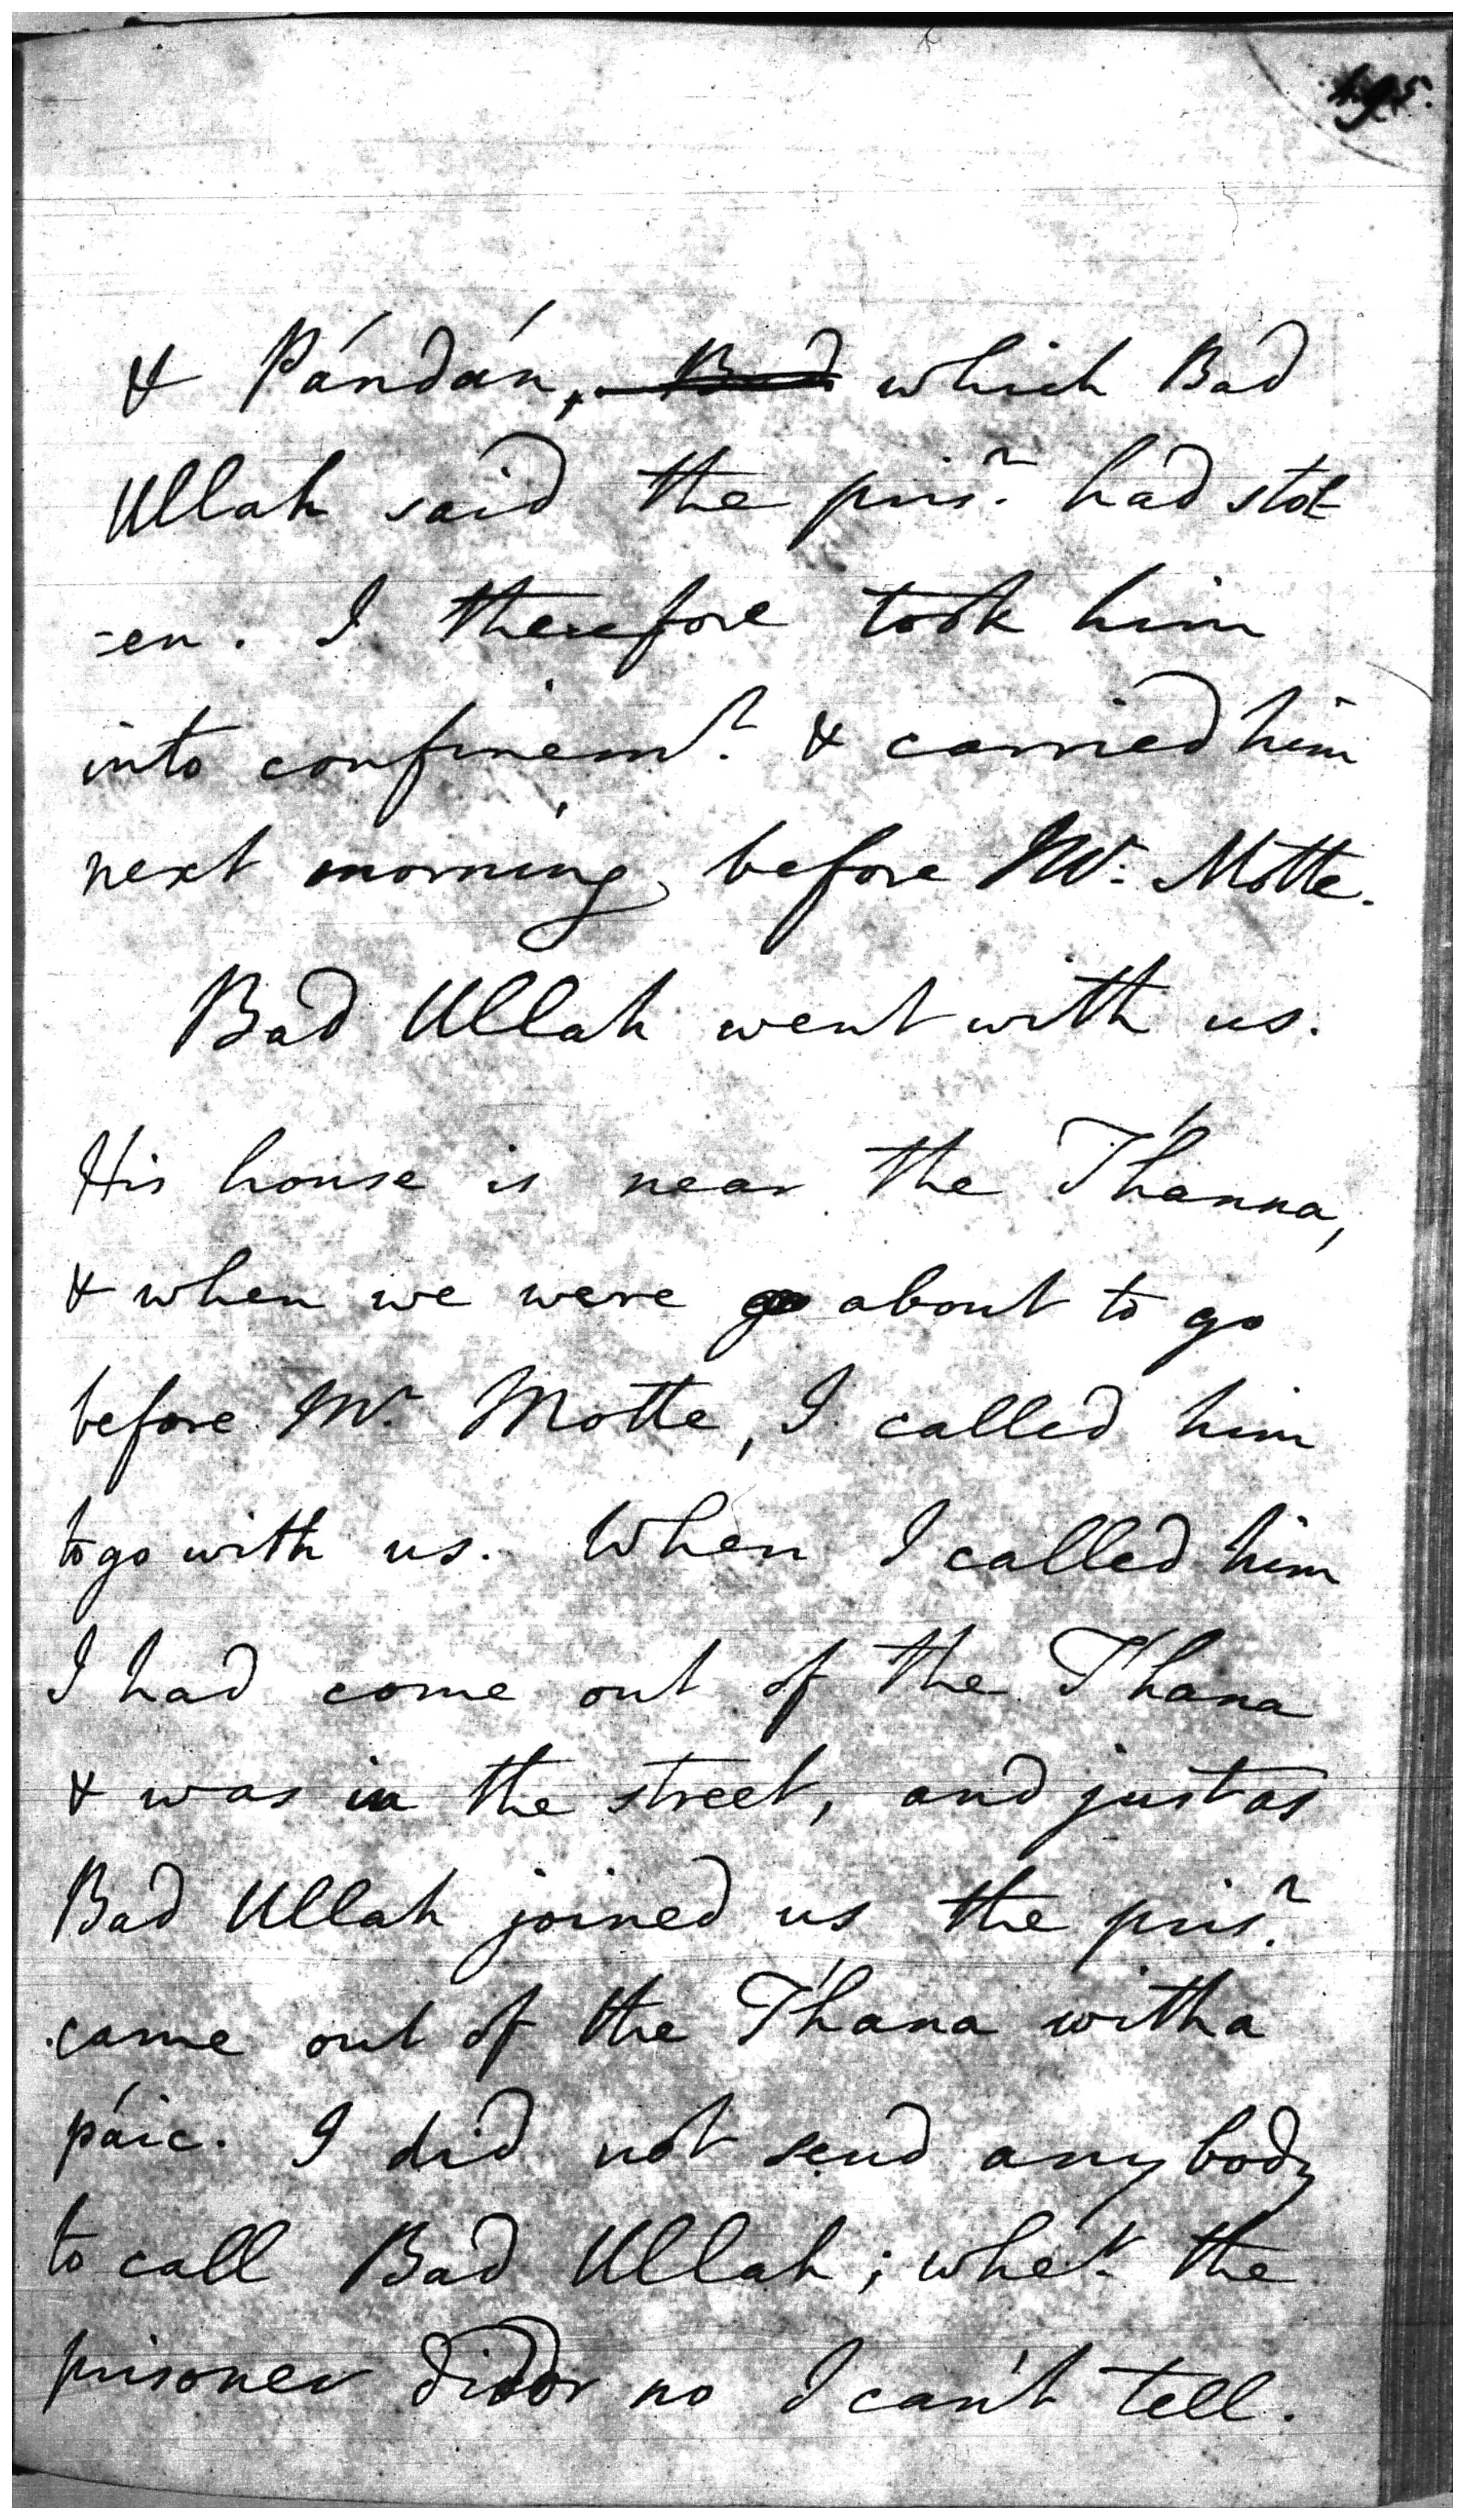 & Pándán, Bad which Bad
Ullah said the pris.r had stol
-en. I therefore took him
into confinem.t & carried him
next morning before Mr. Motte.
Bad Ullah went with us.
His house is near the T'hanna,
& when we were go about to go
before Mr. Motte, I called him
to go with us. When I called him
I had come out of the T'hana
& was in the street, and just as
Bad Ullah joined us the pris.r
came out of the T'hana with a
páic. I did not send any body
to call Bad Ullah; wheth.r the
prisoner did or no I can't tell.